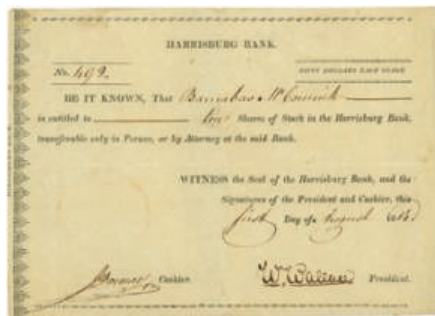 HARRISBURG BANK.
No. 492.
FIFTY DOLLARS EACH SHARE
BE IT KNOWN, That Barnabas McCormick
is entitled to Shares of Stock in the Harrisburg Bank,
transferable only in Person, or by Attorney at the said Bank.
WITNESS the Seal of the Harrisburg Bank, and the
Signatures of the President and Cashier, this
first Day of August
Cashier.
W. Wallace President.